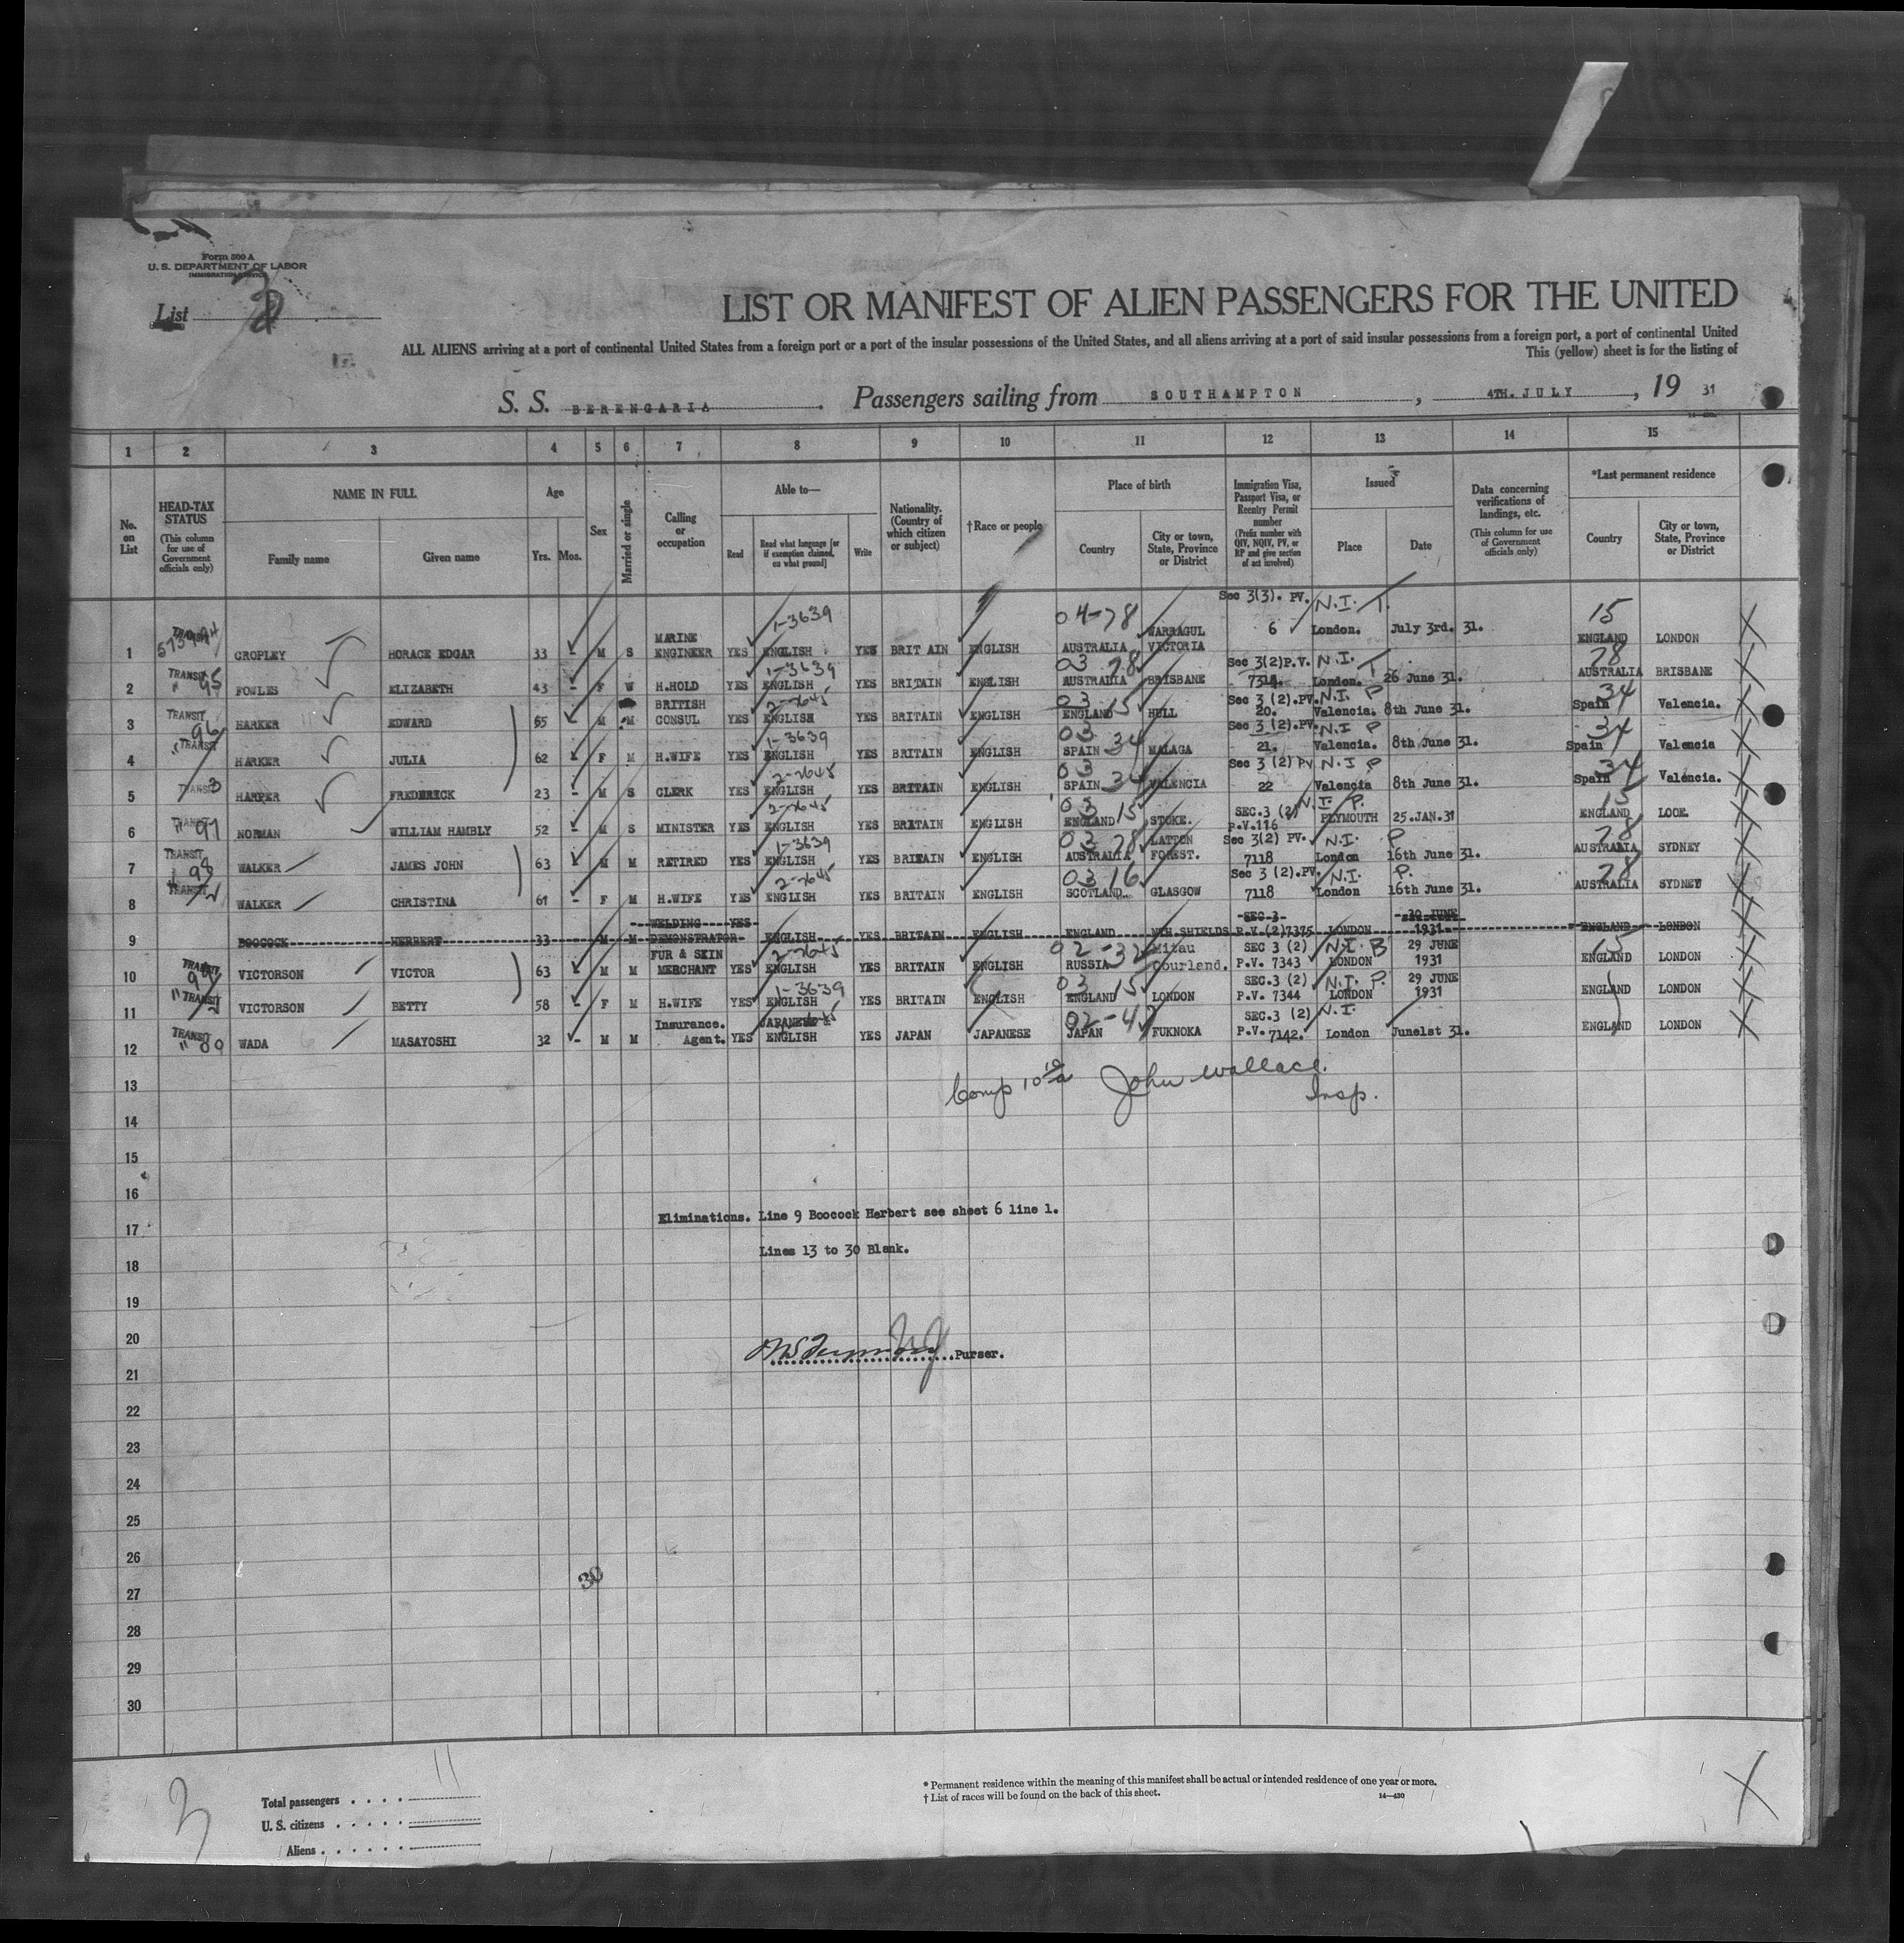 Form 500 A
U. S. DEPARTMENT OF LABOR
IMMIGRATION SERVICE
List
LIST OR MANIFEST OF ALIEN PASSENGERS FOR THE UNITED
ALL ALIENS arriving at a port of continental United States from a foreign port or a port of the insular possessions of the United States, and all aliens arriving at a port of said insular possessions from a foreign port, a port of continental United
This (yellow) sheet is for the listing of
S. S. BERENGARIA. Passengers sailing from SOUTHAMPTON, 4TH. JULY, 19 31
1 2 3 4 5 6 7 8 9 10 11 12 13 14 15
No. on List
HEAD-TAX STATUS (This column for use of Government officials only)
NAME IN FULL Family name Given name
Age Yrs. Mos.
Sex
Married or single
Calling or occupation
Able to— Read Read what language [or if exemption claimed, on what ground] Write
Nationality. (Country of which citizen or subject)
†Race or people
Place of birth Country City or town, State, Province or District
Immigration Visa, Passport Visa, or Reentry Permit number (Prefix number with QIV, NQIV, PV, or RP and give section of act involved)
Issued Place Date
Data concerning verifications of landings, etc. (This column for use of Government officials only)
*Last permanent residence Country City or town, State, Province or District
Sec 3(3). PV. N.I. T.
1-3639 04-78 15
1 TRANSIT CROPLEY HORACE EDGAR 33 - M S MARINE ENGINEER YES ENGLISH YES BRIT AIN ENGLISH AUSTRALIA WARRAGUL VICTORIA 6 London. July 3rd. 31. ENGLAND LONDON
1-3639 03 78 Sec 3(2)P.V. N.I. T 78
2 TRANSIT " 95 FOWLES ELIZABETH 43 - F W H.HOLD YES ENGLISH YES BRITAIN ENGLISH AUSTRALIA BRISBANE 7314. London. 26 June 31. AUSTRALIA BRISBANE
2-2645 03 15 Sec 3 (2).PV. N.I. P 34
3 TRANSIT 96 HARKER EDWARD 65 M M BRITISH CONSUL YES ENGLISH YES BRITAIN ENGLISH ENGLAND HULL 20. Valencia. 8th June 31. Spain Valencia.
1-3639 03 34 Sec 3 (2).PV. N.I P 34
4 "TRANSIT HARKER JULIA 62 F M H.WIFE YES ENGLISH YES BRITAIN ENGLISH SPAIN MALAGA 21. Valencia. 8th June 31. Spain Valencia
2-2645 03 34 Sec 3 (2) PV N.I P 34
5 TRANSIT HARPER FREDERICK 23 - M S CLERK YES ENGLISH YES BRITAIN ENGLISH SPAIN VALENCIA 22 Valencia 8th June 31. Spain Valencia.
2-2645 03 15 N.I. P. 15
6 TRANSIT " 97 NORMAN WILLIAM HAMBLY 52 - M S MINISTER YES ENGLISH YES BRITAIN ENGLISH ENGLAND STOKE. SEC.3 (2) P.V.116 PLYMOUTH 25.JAN.31 ENGLAND LOOE.
1-3639 03 78 Sec 3(2) PV. N.I. P 78
7 TRANSIT " 98 WALKER JAMES JOHN 63 M M RETIRED YES ENGLISH YES BRITAIN ENGLISH AUSTRALIA FOREST. 7118 London 16th June 31. AUSTRALIA SYDNEY
2-2645 03 16 Sec 3 (2).PV. N.I. P. 78
8 TRANSIT WALKER CHRISTINA 61 - F M H.WIFE YES ENGLISH YES BRITAIN ENGLISH SCOTLAND GLASGOW 7118 London 16th June 31. AUSTRALIA SYDNEY
9 BOOCOCK HERBERT 33 M M WELDING DEMONSTRATOR YES ENGLISH YES BRITAIN ENGLISH ENGLAND NTH.SHIELDS SEC-3 P.V.(2)7375 LONDON 30 JUNE 1931 ENGLAND LONDON
2-2645 02-32 N.I. B 15
10 TRANSIT VICTORSON VICTOR 63 - M M FUR & SKIN MERCHANT YES ENGLISH YES BRITAIN ENGLISH RUSSIA Mitau Courland. SEC 3 (2) P.V. 7343 LONDON 29 JUNE 1931 ENGLAND LONDON
1-3639 03 15 N.I. P.
11 " TRANSIT VICTORSON BETTY 58 - F M H.WIFE YES ENGLISH YES BRITAIN ENGLISH ENGLAND LONDON SEC.3 (2) P.V. 7344 LONDON 29 JUNE 1931 ENGLAND LONDON
02-4 N.I.
12 TRANSIT " WADA MASAYOSHI 32 - M M Insurance. Agent. YES JAPANESE & ENGLISH YES JAPAN JAPANESE JAPAN FUKNOKA SEC.3 (2) P.V. 7142. London June1st 31. ENGLAND LONDON
Comp John Wallace.
Insp.
13
14
15
16
17
Eliminations. Line 9 Boocock Herbert see sheet 6 line 1.
Lines 13 to 30 Blank.
18
19
20
Purser.
21
22
23
24
25
26
27
30
28
29
30
11
Total passengers
U. S. citizens
Aliens
* Permanent residence within the meaning of this manifest shall be actual or intended residence of one year or more.
† List of races will be found on the back of this sheet.
14—430